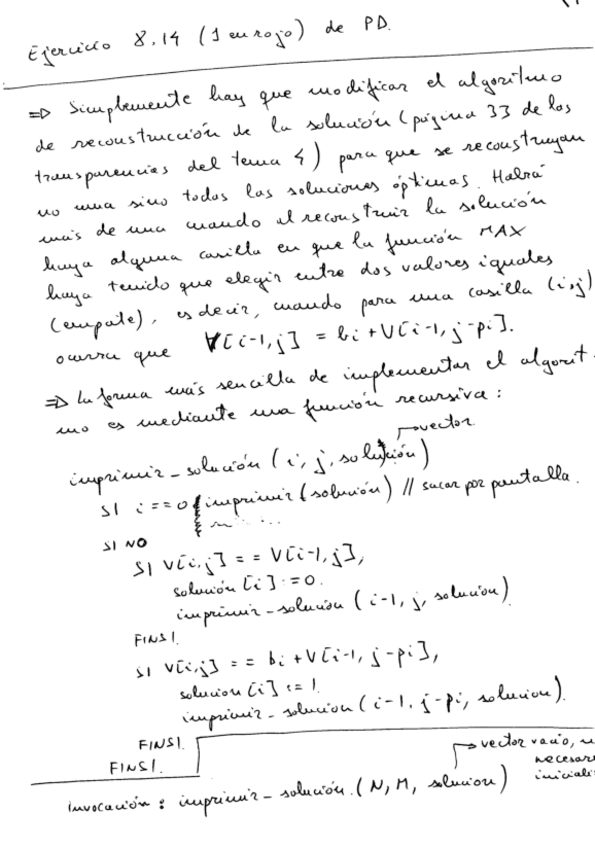 Ejercicio 8.14 (1 en rojo) de PD.
⇒ Simplemente hay que modificar el algoritmo
de reconstrucción de la solución (página 33 de las
transparencias del tema 4) para que se reconstruyan
no una sino todas las soluciones óptimas. Habrá
más de una cuando al reconstruir la solución
haya alguna casilla en que la función MAX
haya tenido que elegir entre dos valores iguales
(empate), es decir, cuando para una casilla (i,j)
ocurra que V[i-1,j] = bi + V[i-1, j-pi].
⇒ La forma más sencilla de implementar el algorit-
mo es mediante una función recursiva:
vector
imprimir_solución (i, j, solución)
SI i == 0 { imprimir (solución) // sacar por pantalla.
SI NO
SI V[i,j] == V[i-1,j],
solución [i] := 0.
imprimir_solución (i-1, j, solución)
FINSI.
SI V[i,j] == bi + V[i-1, j-pi],
solucion [i] := 1.
imprimir_solucion (i-1, j-pi, solucion).
FINSI.
FINSI.
vector vacío,
necesar
iniciali
Invocación: imprimir_solución (N, M, solucion)